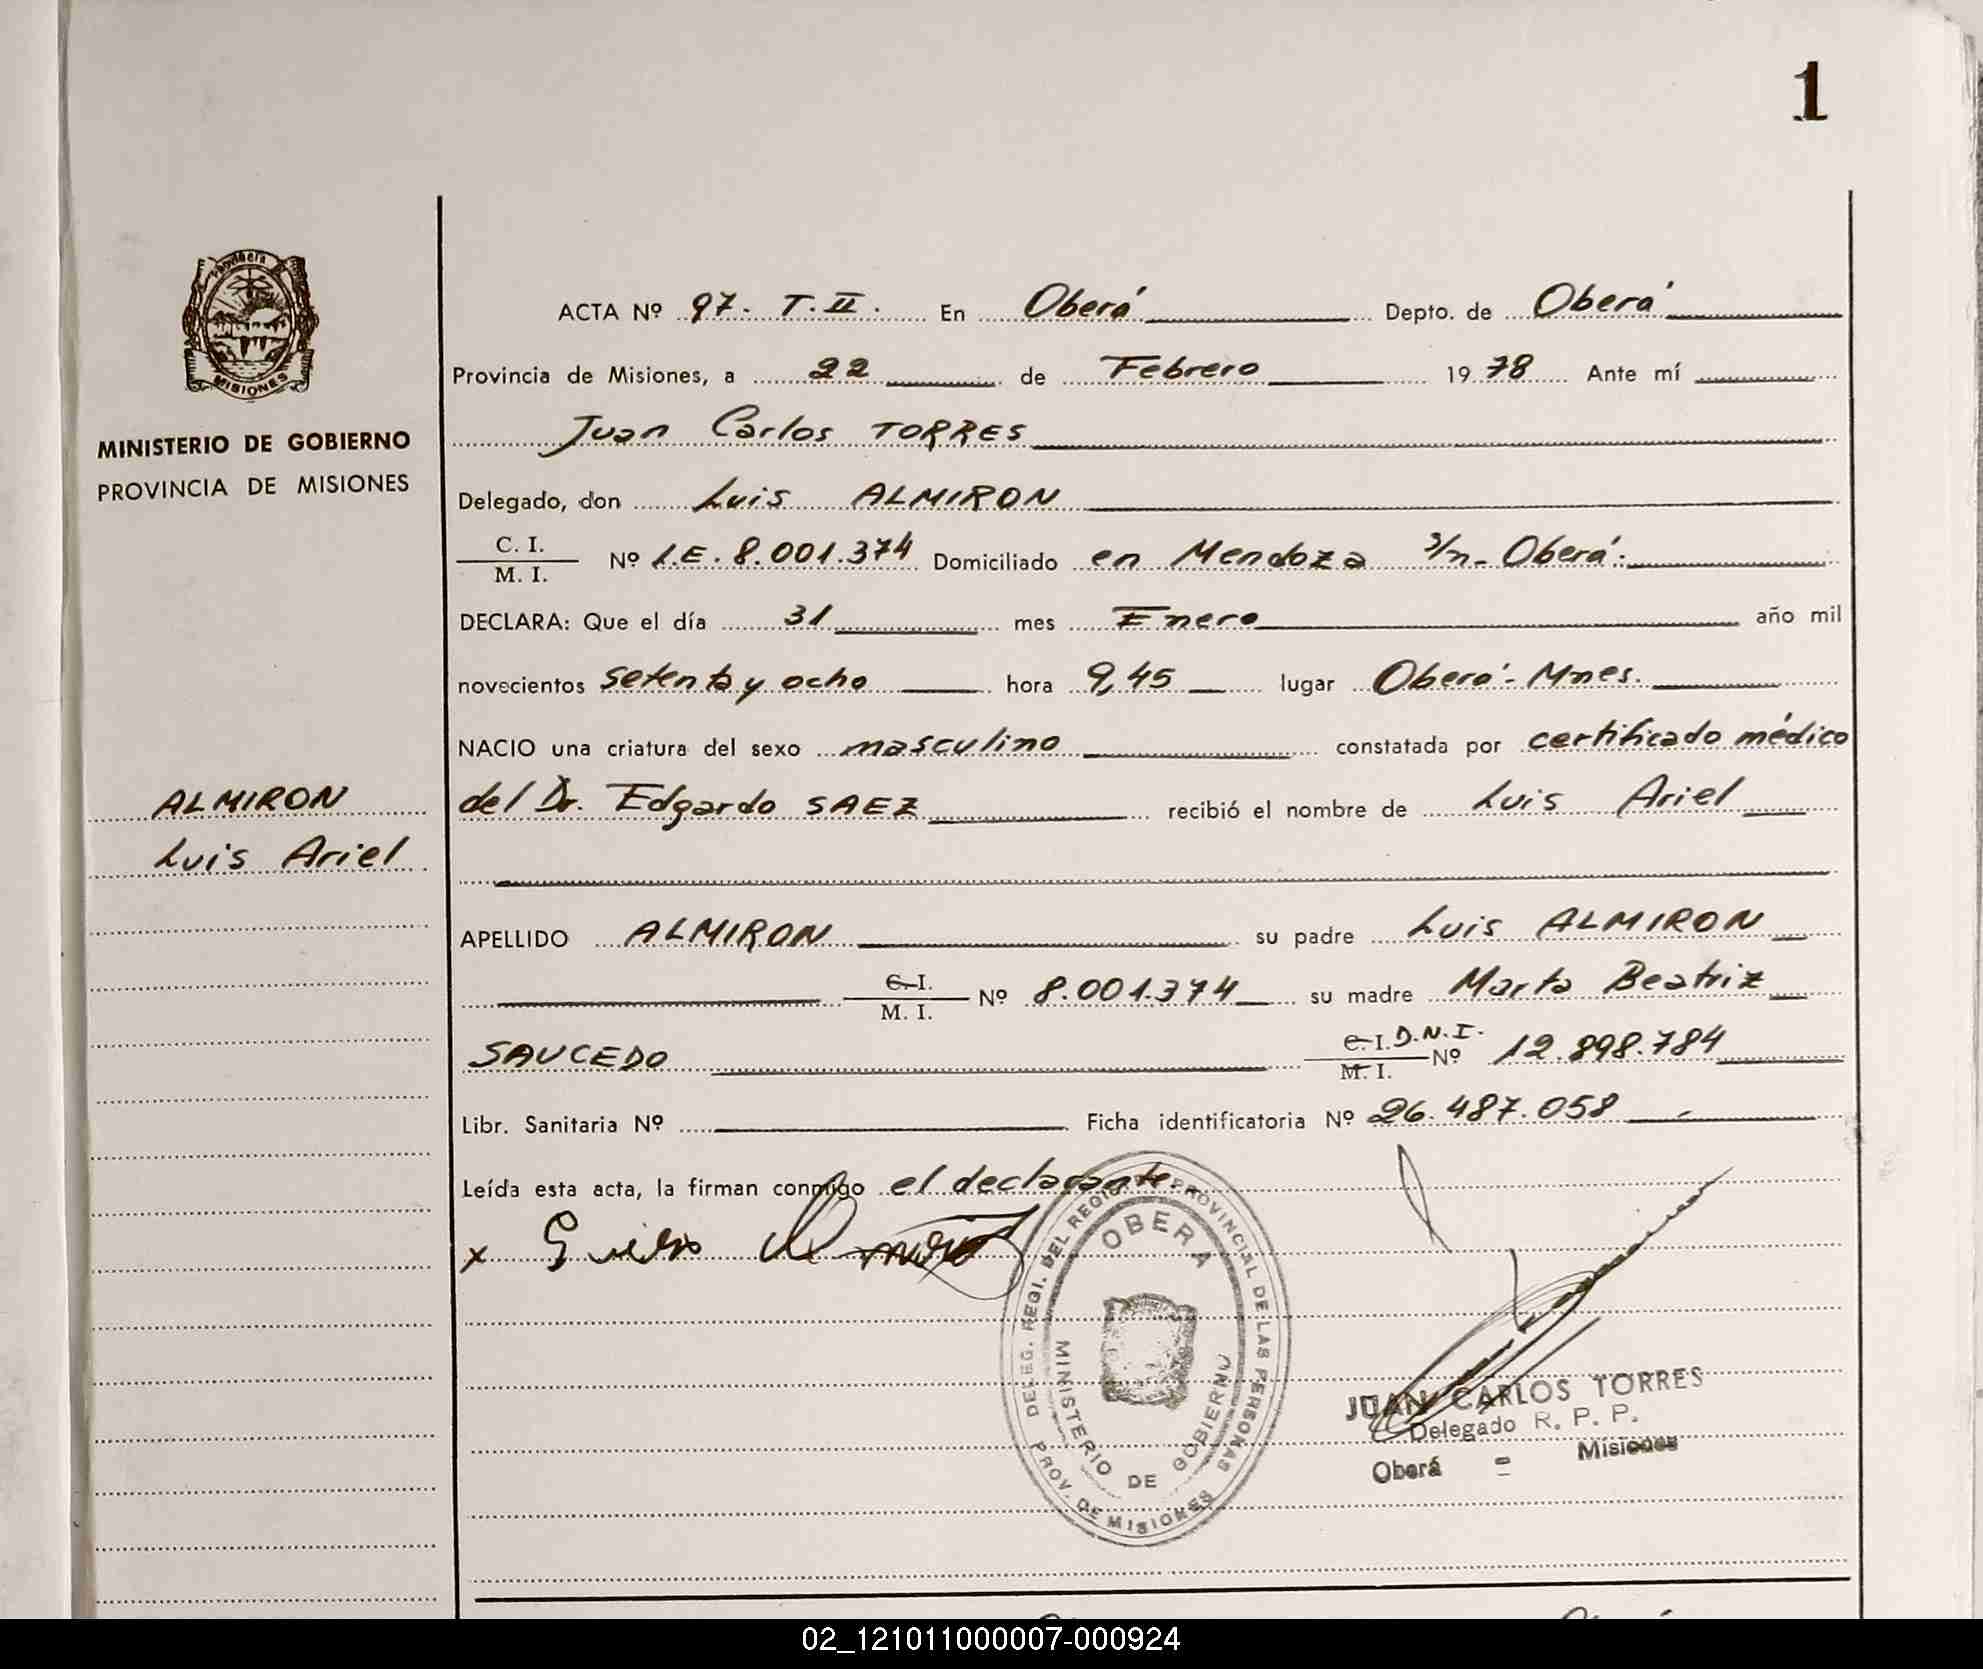 1
Provincia
MISIONES
MINISTERIO DE GOBIERNO
PROVINCIA DE MISIONES
ACTA Nº 97. T. II. En Oberá Depto. de Oberá
Provincia de Misiones, a 22 de Febrero 1978 Ante mí
Juan Carlos TORRES
Delegado, don Luis ALMIRON
C. I.
M. I.
Nº L.E. 8.001.374 Domiciliado en Mendoza s/n - Oberá.
DECLARA: Que el día 31 mes Enero año mil
novecientos setenta y ocho hora 9,45 lugar Oberá - Mnes.
NACIO una criatura del sexo masculino constatada por certificado médico
ALMIRON
del Dr. Edgardo SAEZ recibió el nombre de Luis Ariel
Luis Ariel
APELLIDO ALMIRON su padre Luis ALMIRON
C. I.
M. I.
Nº 8.001.374 su madre Marta Beatriz
SAUCEDO C. I. D.N.I. Nº 12.898.784
M. I.
Libr. Sanitaria Nº Ficha identificatoria Nº 26.487.058
Leída esta acta, la firman conmigo el declarante.
x
DELEG. REGI. DEL REGIS. PROVINCIAL DE LAS PERSONAS
OBERA
MINISTERIO DE GOBIERNO
PROV. DE MISIONES
JUAN CARLOS TORRES
Delegado R. P. P.
Oberá - Misiones
02_121011000007-000924